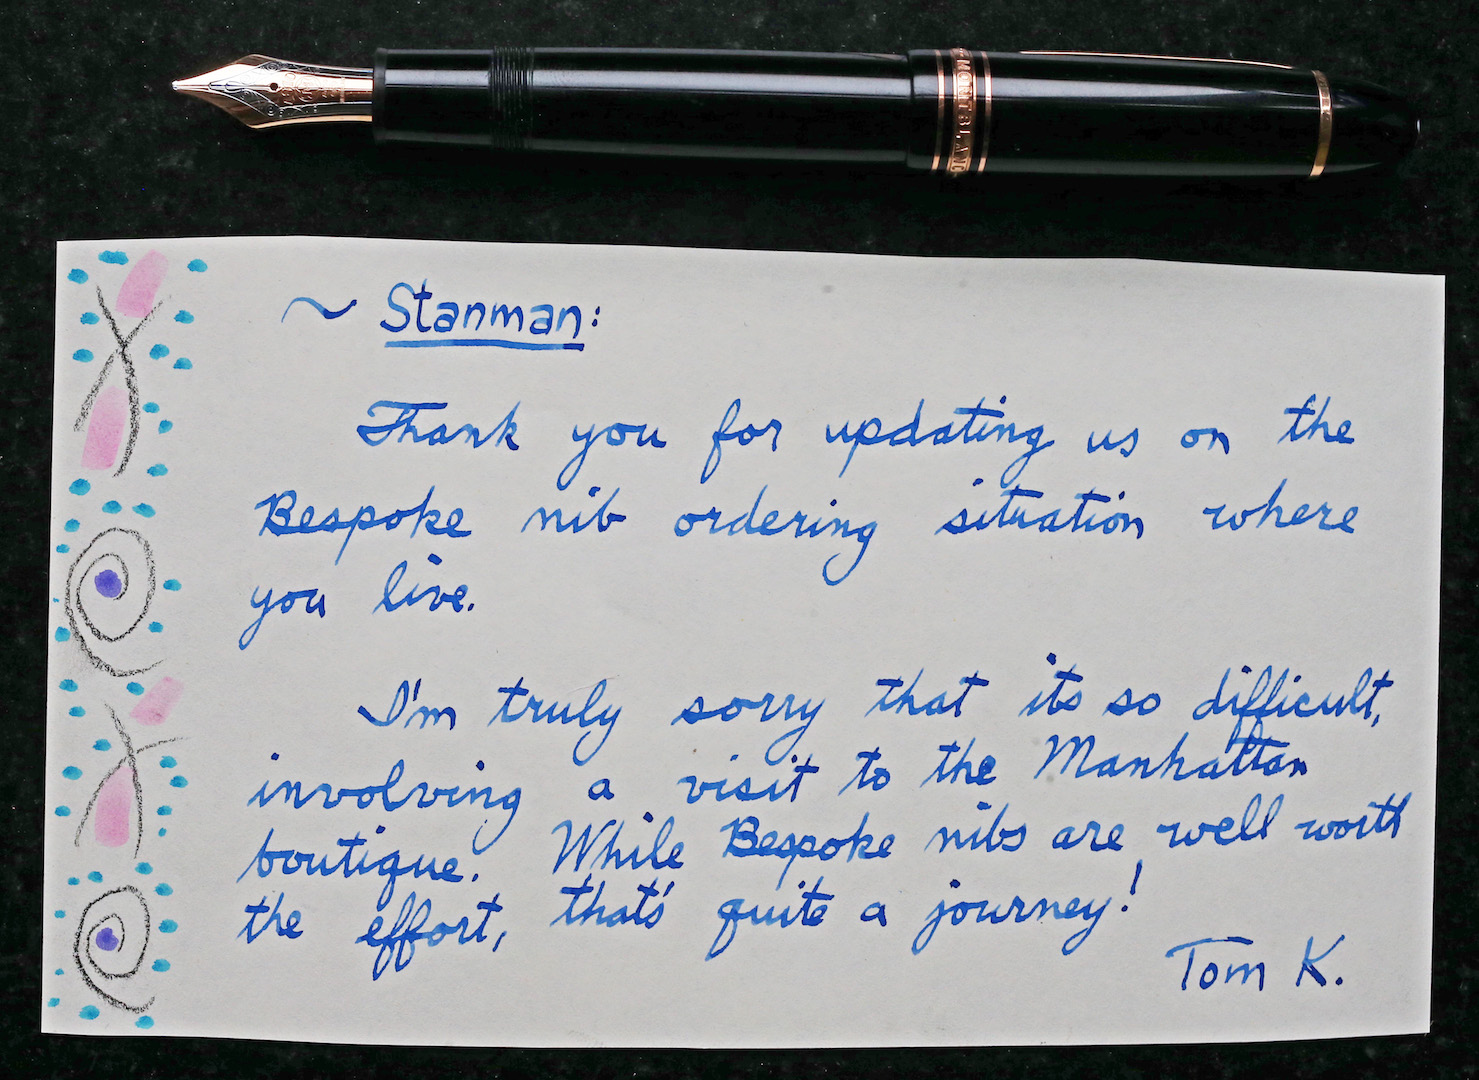 MONTBLANC
~ Stanman:
Thank you for updating us on the
Bespoke nib ordering situation where
you live.
I'm truly sorry that its so difficult,
involving a visit to the Manhattan
boutique. While Bespoke nibs are well worth
the effort, that's quite a journey!
Tom K.